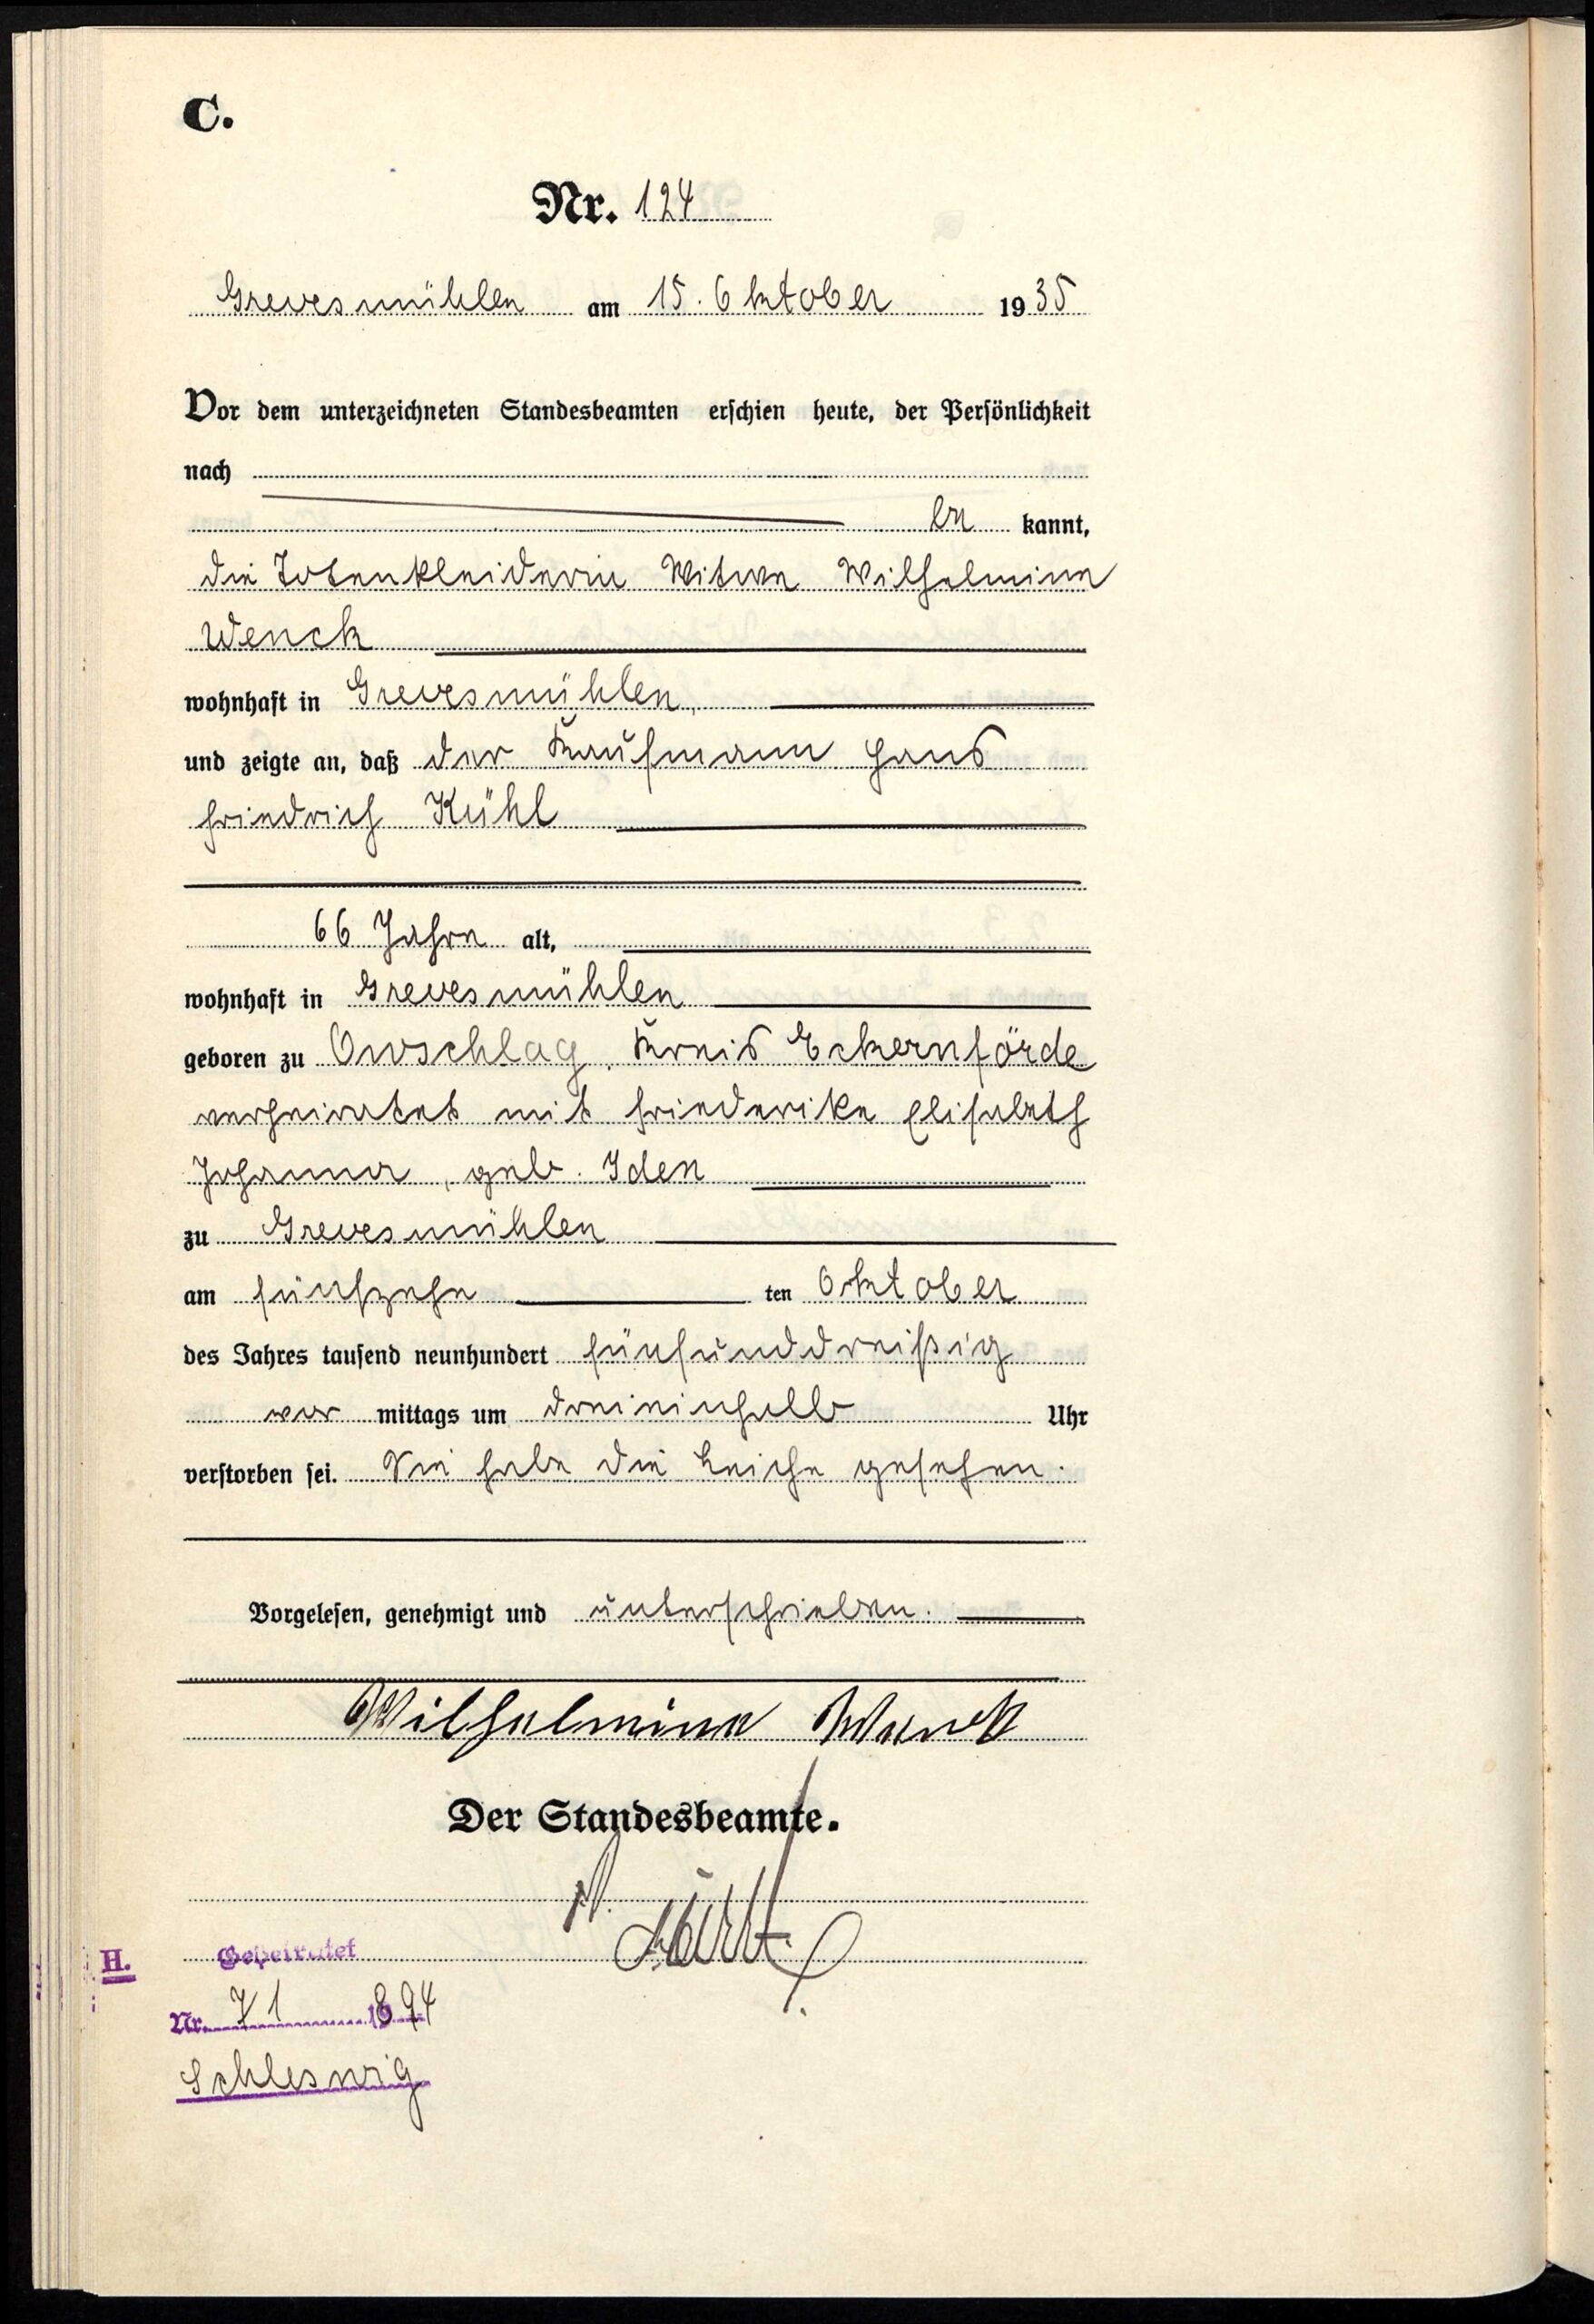 C.
Nr. 124
Grevesmühlen am 15. Oktober 1935
Vor dem unterzeichneten Standesbeamten erschien heute, der Persönlichkeit
nach
be kannt,
die Totenkleiderin Witwe Wilhelmine
Wenck
wohnhaft in Grevesmühlen,
und zeigte an, daß der Kaufmann Hans
Friedrich Kühl
66 Jahre alt,
wohnhaft in Grevesmühlen
geboren zu Owschlag, Kreis Eckernförde
verheiratet mit Friederike Elisabeth
Johanna, geb. Iden
zu Grevesmühlen
am fünfzehn ten Oktober
des Jahres tausend neunhundert fünfunddreißig
vor mittags um dreieinhalb Uhr
verstorben sei. Sie habe die Leiche gesehen.
Vorgelesen, genehmigt und unterschrieben.
Wilhelmine Wenck
Der Standesbeamte.
H. Geheiratet
Nr. 71 1894
Schleswig